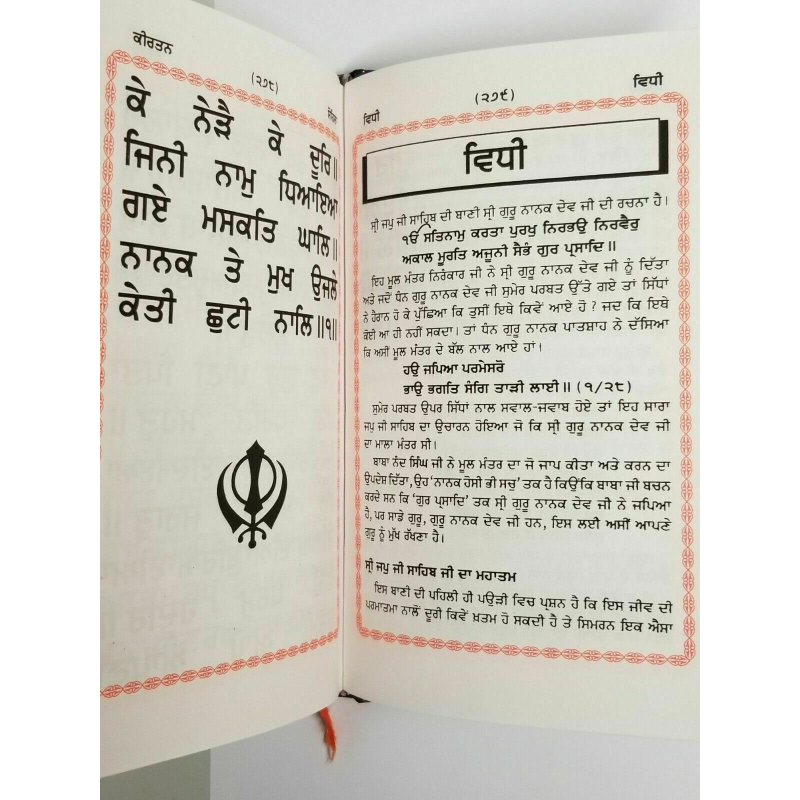 ਕੀਰਤਨ
(੨੭੮)
ਕੇ ਨੇੜੈ ਕੇ ਦੂਰਿ॥
ਜਿਨੀ ਨਾਮੁ ਧਿਆਇਆ
ਗਏ ਮਸਕਤਿ ਘਾਲਿ॥
ਨਾਨਕ ਤੇ ਮੁਖ ਉਜਲੇ
ਕੇਤੀ ਛੁਟੀ ਨਾਲਿ॥੧॥
ਵਿਧੀ
(੨੭੯)
ਵਿਧੀ
ਵਿਧੀ
ਸ੍ਰੀ ਜਪੁ ਜੀ ਸਾਹਿਬ ਦੀ ਬਾਣੀ ਸ੍ਰੀ ਗੁਰੂ ਨਾਨਕ ਦੇਵ ਜੀ ਦੀ ਰਚਨਾ ਹੈ।
ੴ ਸਤਿਨਾਮੁ ਕਰਤਾ ਪੁਰਖੁ ਨਿਰਭਉ ਨਿਰਵੈਰੁ
ਅਕਾਲ ਮੂਰਤਿ ਅਜੂਨੀ ਸੈਭੰ ਗੁਰ ਪ੍ਰਸਾਦਿ॥
ਇਹ ਮੂਲ ਮੰਤਰ ਨਿਰੰਕਾਰ ਜੀ ਨੇ ਸ੍ਰੀ ਗੁਰੂ ਨਾਨਕ ਦੇਵ ਜੀ ਨੂੰ ਦਿੱਤਾ
ਅਤੇ ਜਦੋਂ ਧੰਨ ਗੁਰੂ ਨਾਨਕ ਦੇਵ ਜੀ ਸੁਮੇਰ ਪਰਬਤ ਉੱਤੇ ਗਏ ਤਾਂ ਸਿੱਧਾਂ
ਨੇ ਹੈਰਾਨ ਹੋ ਕੇ ਪੁੱਛਿਆ ਕਿ ਤੁਸੀਂ ਇਥੇ ਕਿਵੇਂ ਆਏ ਹੋ ? ਜਦ ਕਿ ਇਥੇ
ਕੋਈ ਆ ਹੀ ਨਹੀਂ ਸਕਦਾ। ਤਾਂ ਧੰਨ ਗੁਰੂ ਨਾਨਕ ਪਾਤਸ਼ਾਹ ਨੇ ਦੱਸਿਆ
ਕਿ ਅਸੀਂ ਮੂਲ ਮੰਤਰ ਦੇ ਬੱਲ ਨਾਲ ਆਏ ਹਾਂ।
ਹਉ ਜਪਿਆ ਪਰਮੇਸਰੋ
ਭਾਉ ਭਗਤਿ ਸੰਗਿ ਤਾੜੀ ਲਾਈ॥ (੧/੨੮)
ਸੁਮੇਰ ਪਰਬਤ ਉਪਰ ਸਿੱਧਾਂ ਨਾਲ ਸਵਾਲ-ਜਵਾਬ ਹੋਏ ਤਾਂ ਇਹ ਸਾਰਾ
ਜਪੁ ਜੀ ਸਾਹਿਬ ਦਾ ਉਚਾਰਨ ਹੋਇਆ ਜੋ ਕਿ ਸ੍ਰੀ ਗੁਰੂ ਨਾਨਕ ਦੇਵ ਜੀ
ਦਾ ਮਾਲਾ ਮੰਤਰ ਸੀ।
ਬਾਬਾ ਨੰਦ ਸਿੰਘ ਜੀ ਨੇ ਮੂਲ ਮੰਤਰ ਦਾ ਜੋ ਜਾਪ ਕੀਤਾ ਅਤੇ ਕਰਨ ਦਾ
ਉਪਦੇਸ਼ ਦਿੱਤਾ, ਉਹ 'ਨਾਨਕ ਹੋਸੀ ਭੀ ਸਚੁ' ਤਕ ਹੈ ਕਿਉਂਕਿ ਬਾਬਾ ਜੀ ਬਚਨ
ਕਰਦੇ ਸਨ ਕਿ 'ਗੁਰ ਪ੍ਰਸਾਦਿ' ਤਕ ਸ੍ਰੀ ਗੁਰੂ ਨਾਨਕ ਦੇਵ ਜੀ ਨੇ ਜਪਿਆ
ਹੈ, ਪਰ ਸਾਡੇ ਗੁਰੂ, ਗੁਰੂ ਨਾਨਕ ਦੇਵ ਜੀ ਹਨ, ਇਸ ਲਈ ਅਸੀਂ ਆਪਣੇ
ਗੁਰੂ ਨੂੰ ਮੁੱਖ ਰੱਖਣਾ ਹੈ।
ਸ੍ਰੀ ਜਪੁ ਜੀ ਸਾਹਿਬ ਜੀ ਦਾ ਮਹਾਤਮ
ਇਸ ਬਾਣੀ ਦੀ ਪਹਿਲੀ ਹੀ ਪਉੜੀ ਵਿਚ ਪ੍ਰਸ਼ਨ ਹੈ ਕਿ ਇਸ ਜੀਵ ਦੀ
ਪਰਮਾਤਮਾ ਨਾਲੋਂ ਦੂਰੀ ਕਿਵੇਂ ਖ਼ਤਮ ਹੋ ਸਕਦੀ ਹੈ ਤੇ ਸਿਮਰਨ ਇਕ ਐਸਾ